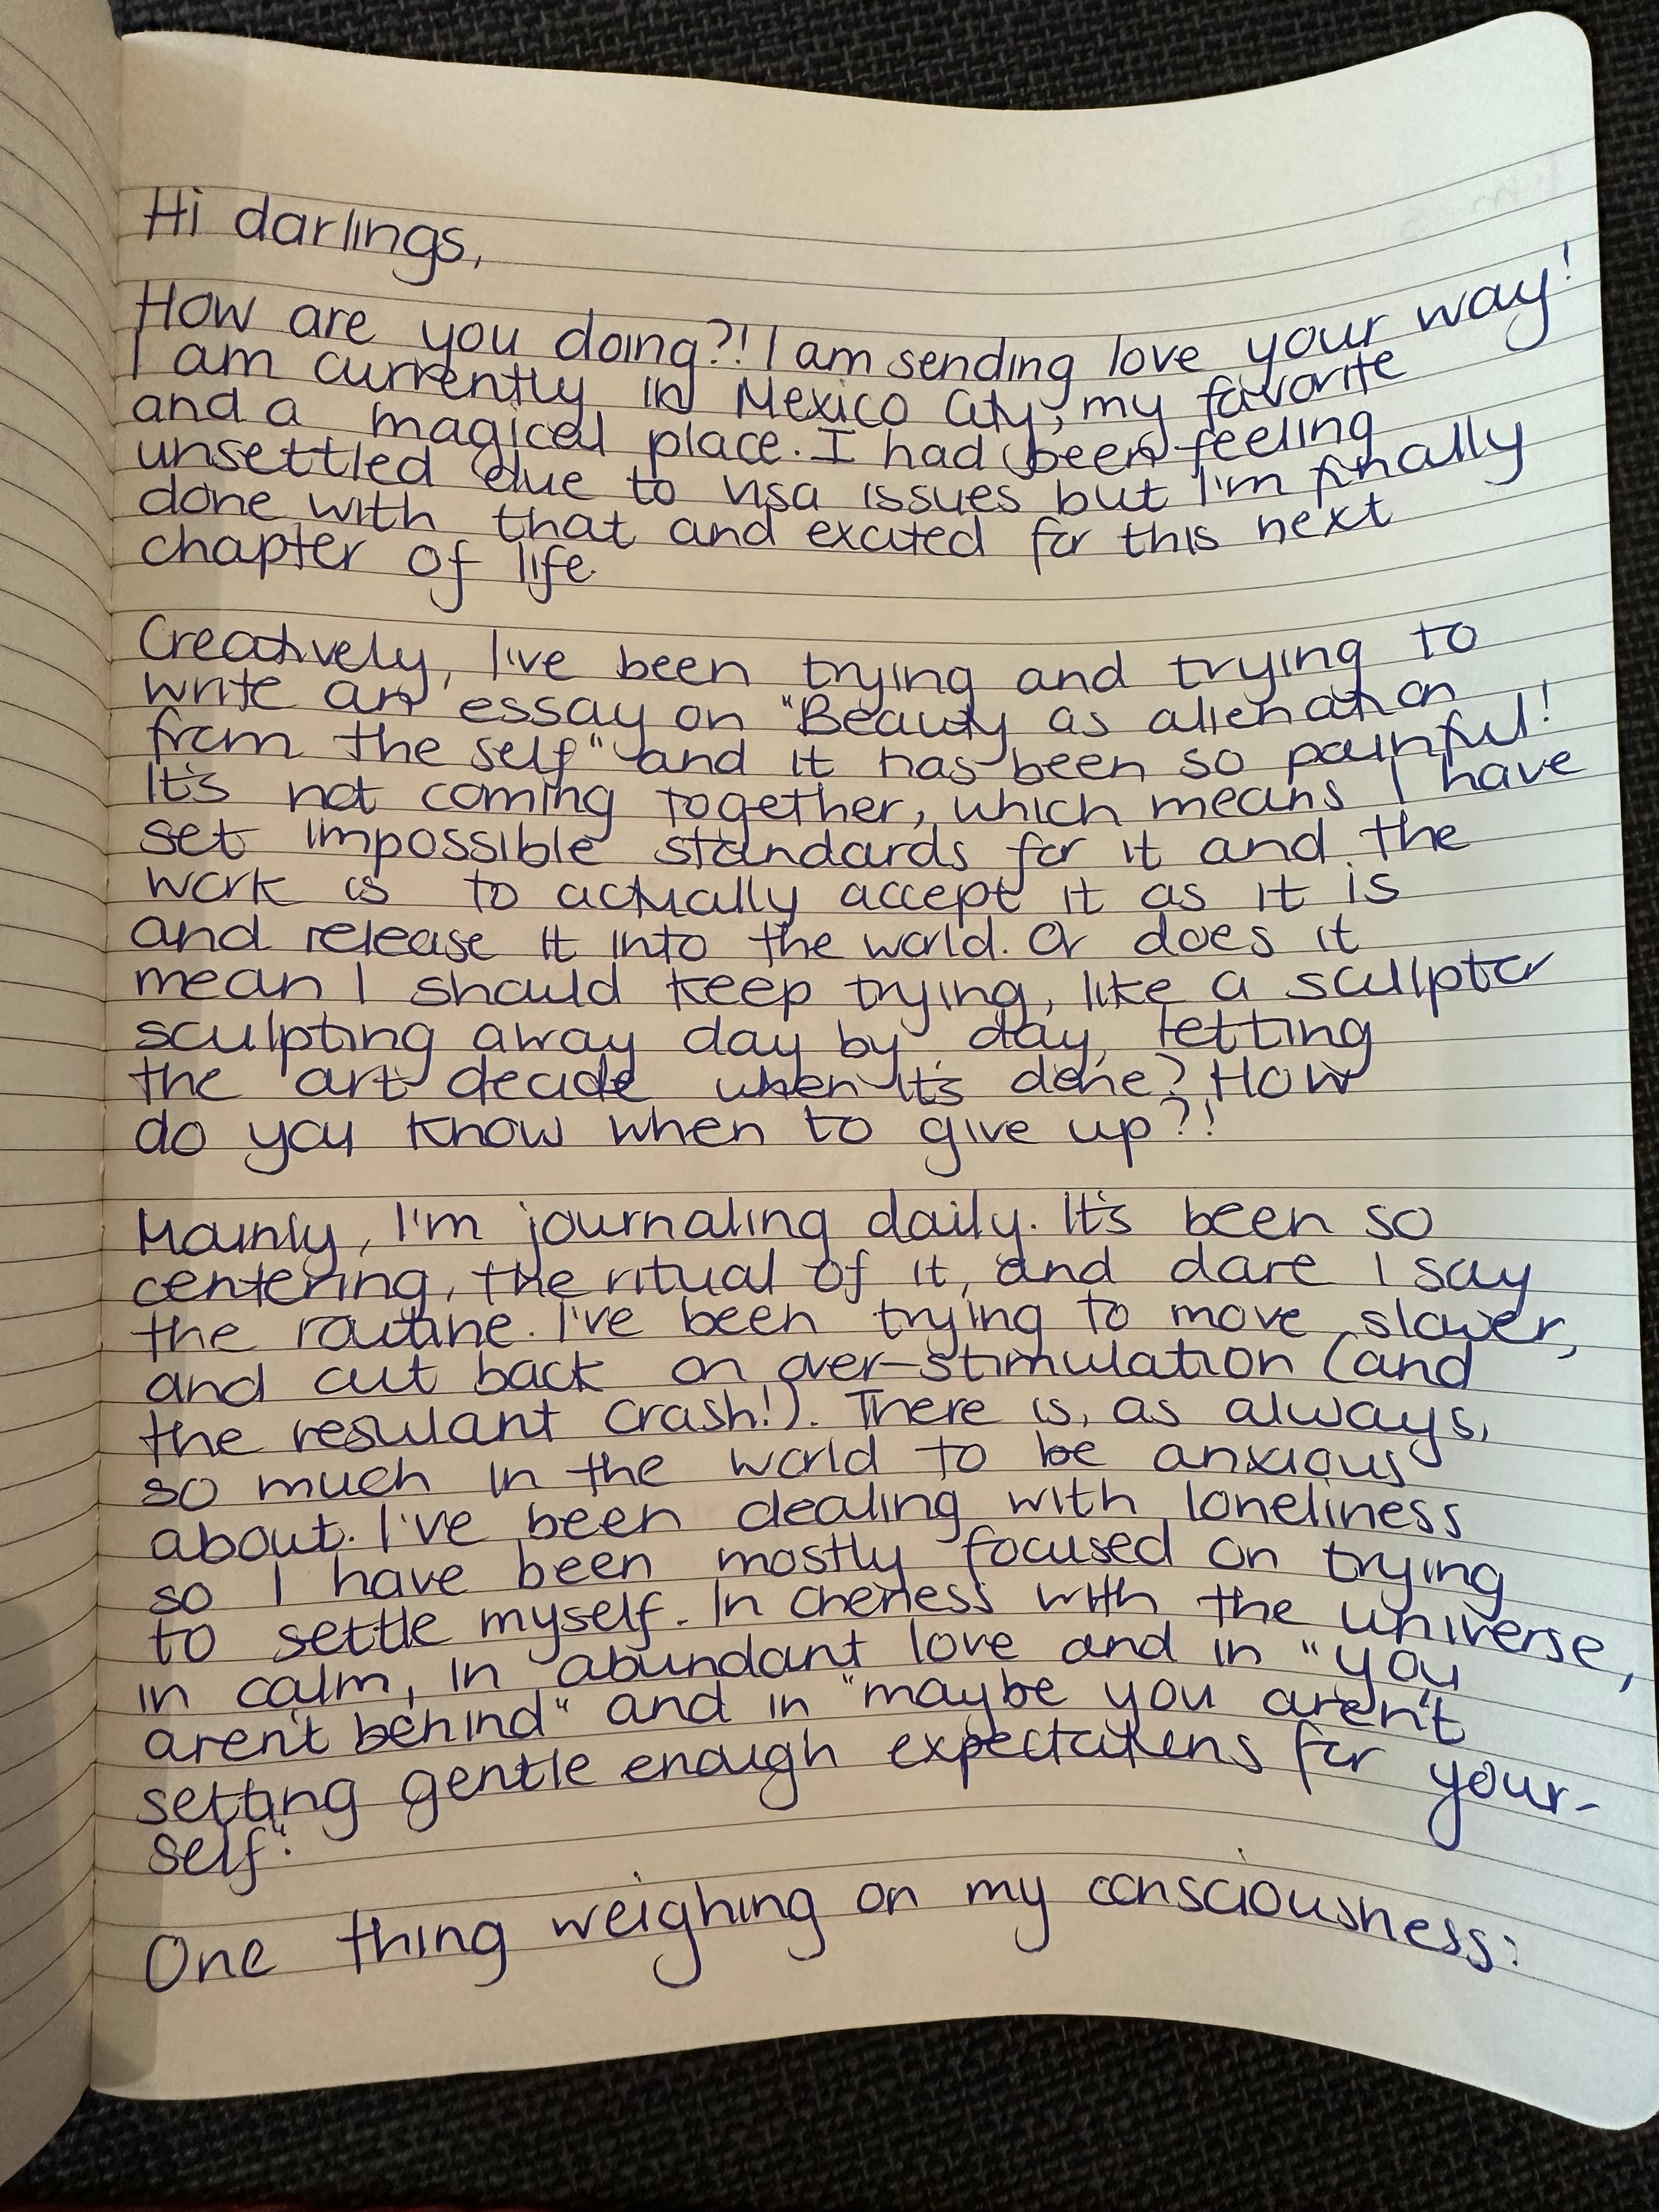 Hi darlings,
How are you doing?! I am sending love your way!
I am currently in Mexico City, my favorite
and a magical place. I had been feeling
unsettled due to visa issues but I'm finally
done with that and excited for this next
chapter of life
Creatively, I've been trying and trying to
write an essay on "Beauty as alienation
from the self" and it has been so painful!
It's not coming together, which means I have
set impossible standards for it and the
work is to actually accept it as it is
and release it into the world. Or does it
mean I should keep trying, like a scullptor
sculpting away day by day, letting
the art decide when it's done? How
do you know when to give up?!
Mainly, I'm journaling daily. It's been so
centering, the ritual of it, and dare I say
the routine. I've been trying to move slower,
and cut back on over-stimulation (and
the resulant crash!). There is, as always,
so much in the world to be anxious
about. I've been dealing with loneliness
so I have been mostly focused on trying
to settle myself. In oneness with the universe,
in calm, in abundant love and in "you
aren't behind" and in "maybe you aren't
setting gentle enough expectations for your-
self".
One thing weighing on my consciousness: